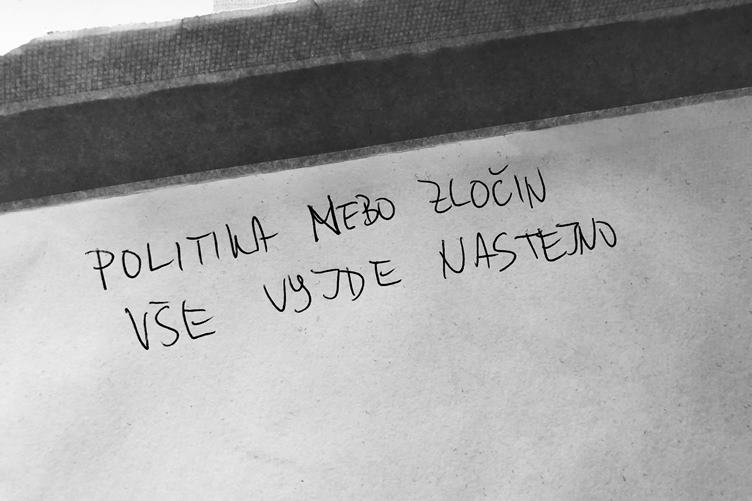 POLITIKA NEBO ZLOČIN
VŠE VYJDE NASTEJNO